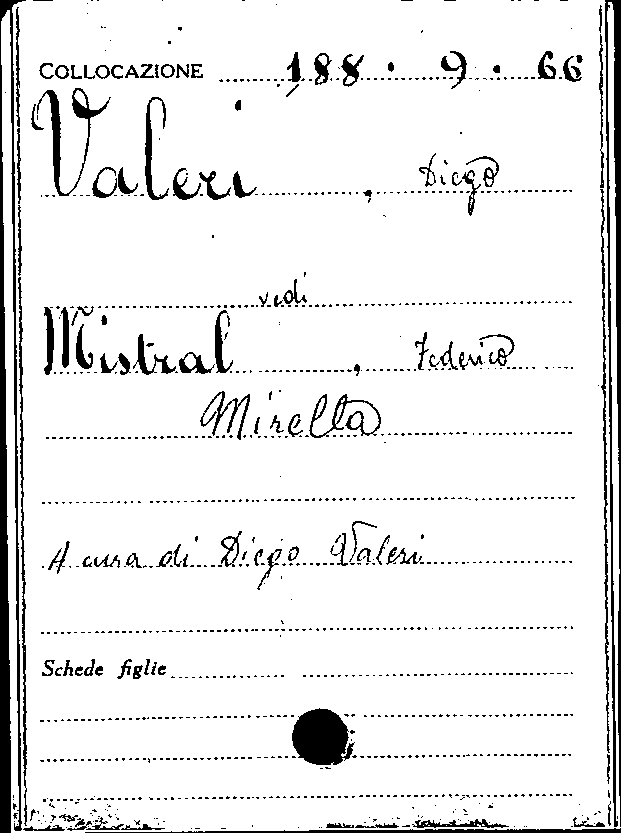 COLLOCAZIONE 188 · 9 · 66
Valeri, Diego
vedi
Mistral, Federico
Mirella
A cura di Diego Valeri
Schede figlie